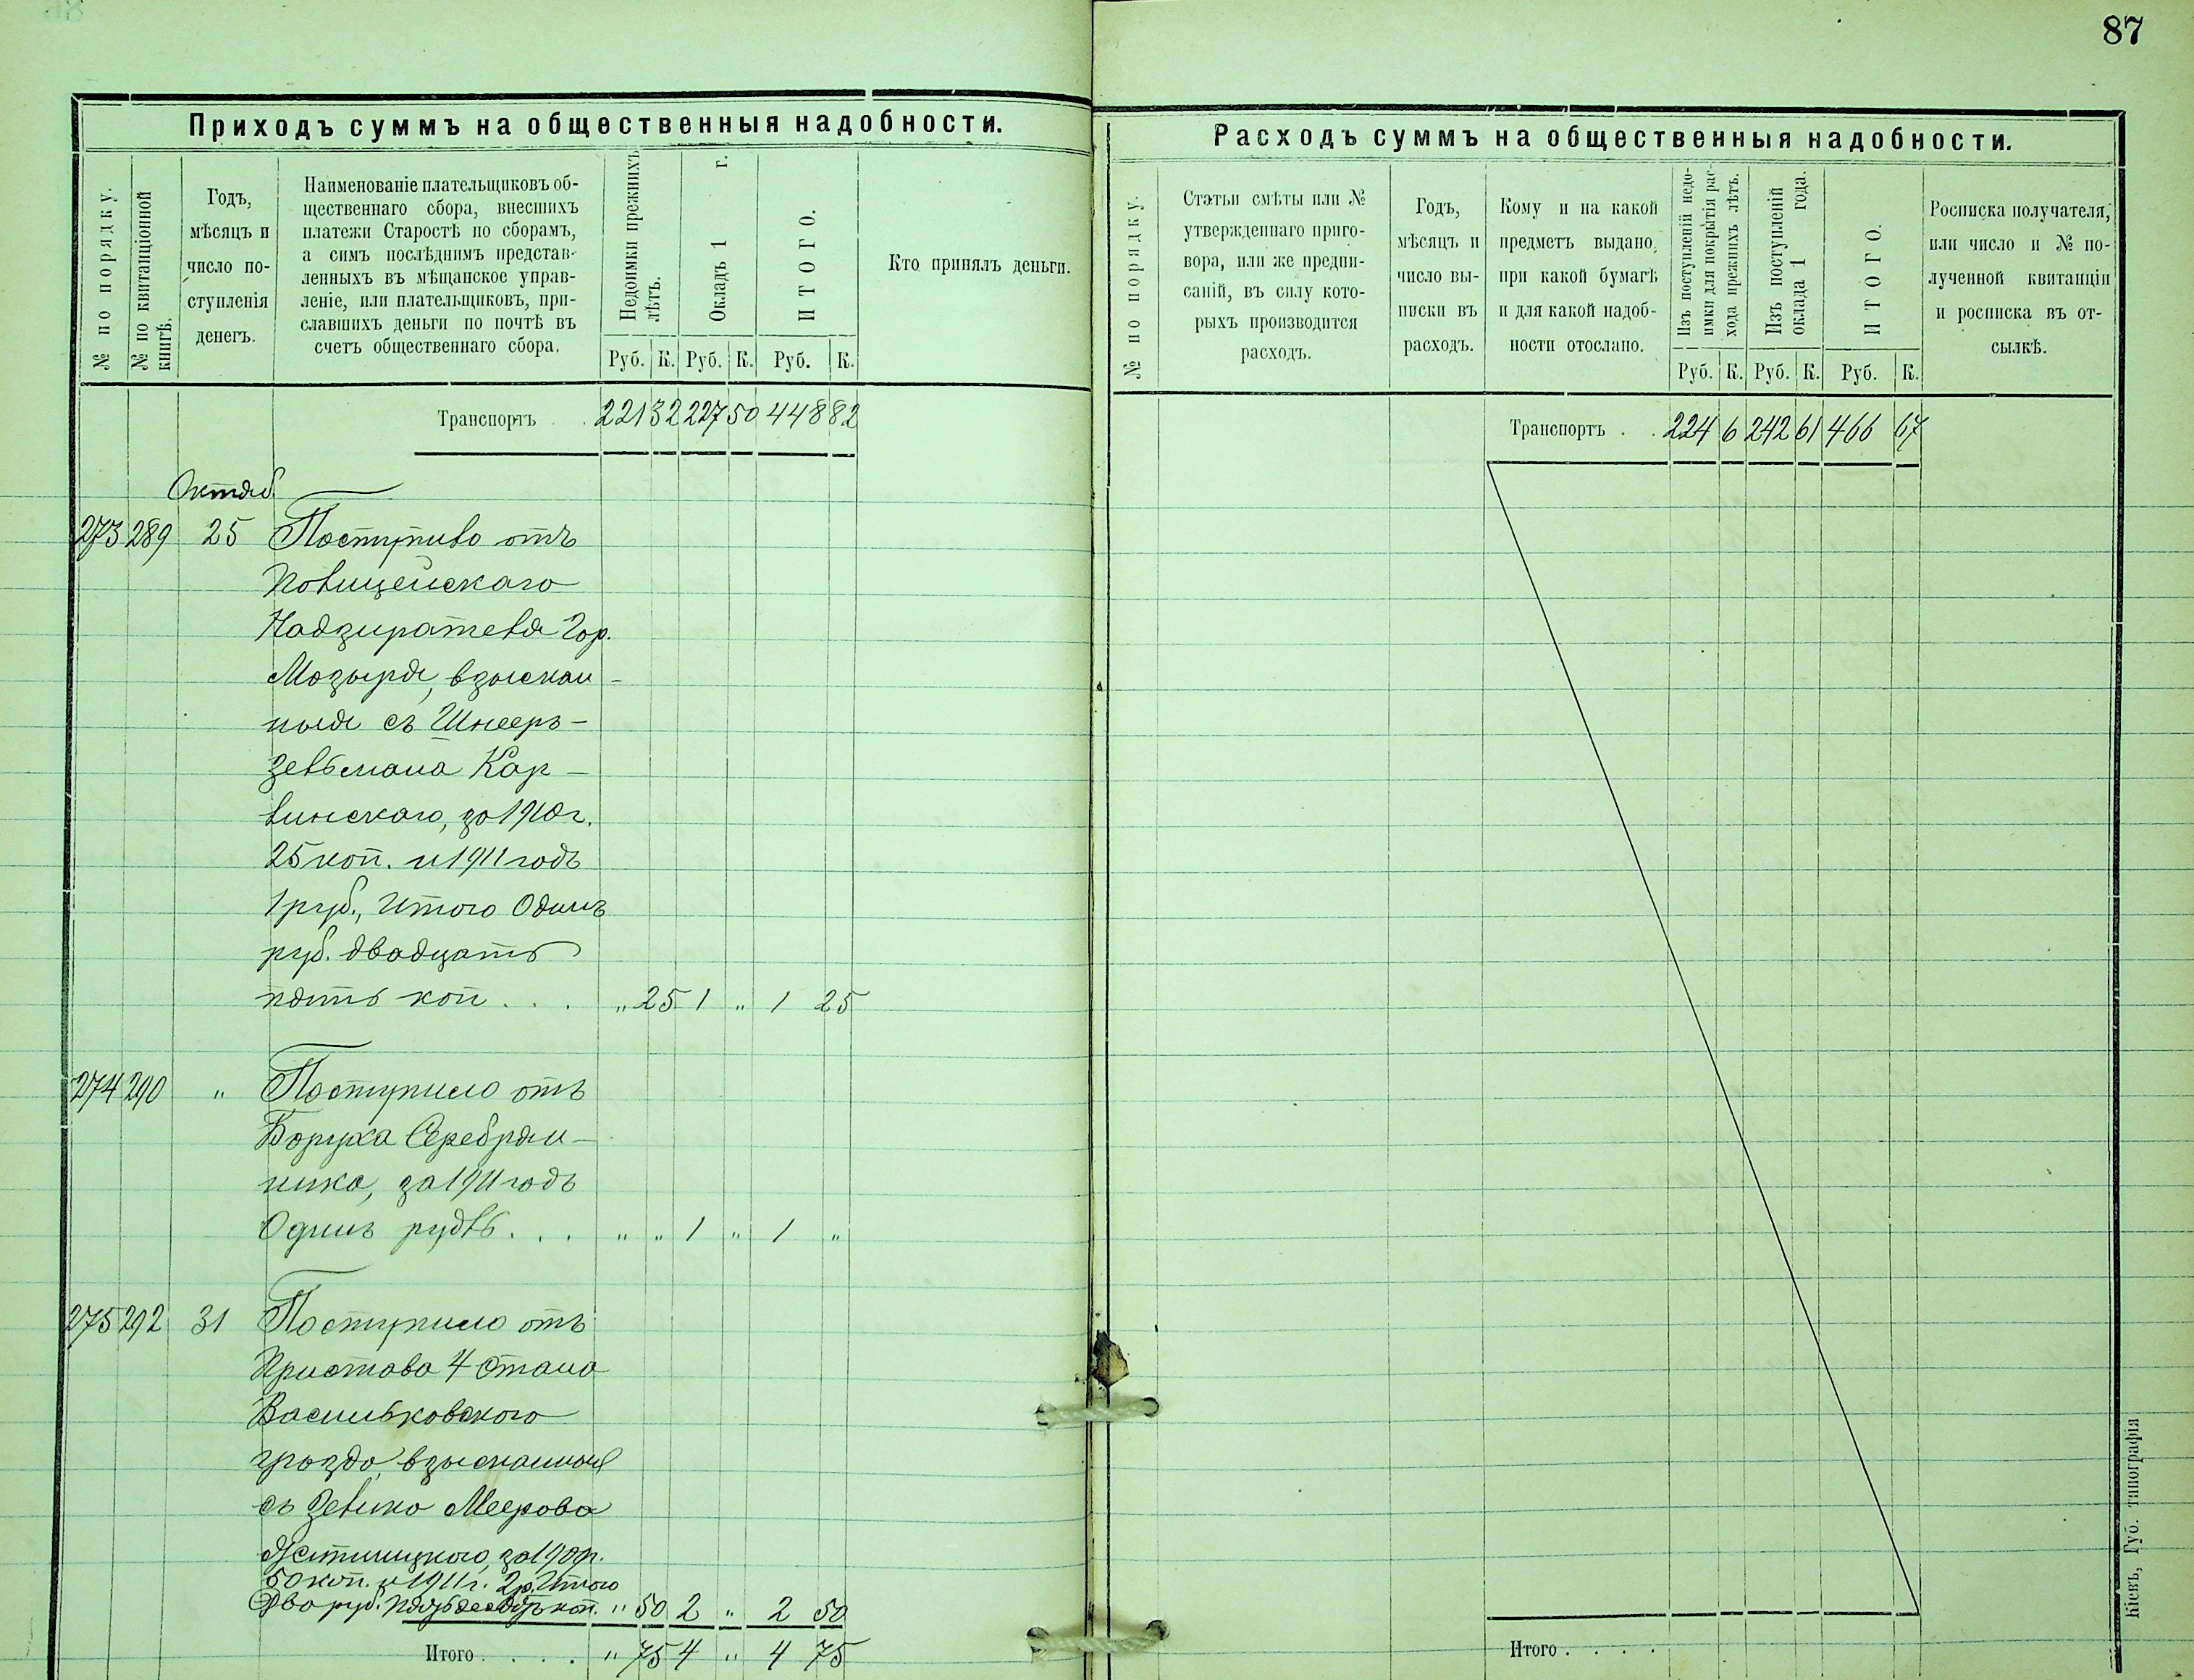 87
Приходъ суммъ на общественныя надобности.
№ по порядку.
№ по квитанціонной книгѣ.
Годъ,
мѣсяцъ и
число по-
ступленія
денегъ.
Наименованіе плательщиковъ об-
щественнаго сбора, внесшихъ
платежи Старостѣ по сборамъ,
а симъ послѣднимъ представ-
ленныхъ въ мѣщанское управ-
леніе, или плательщиковъ, при-
славшихъ деньги по почтѣ въ
счетъ общественнаго сбора.
Недоимки прежнихъ
лѣтъ.
Окладъ 1 г.
ИТОГО.
Руб. К. Руб. К. Руб. К.
Кто принялъ деньги.
Транспортъ . . 221 32 227 50 448 82
Октяб.
273 289 25 Поступило отъ
Полицейскаго
Надзирателя Гор.
Мозыря, взыскан-
ныя съ Шнееръ-
Зельмана Кар-
линскаго, за 1910 г.
25 коп. и 1911 годъ
1 руб., Итого Одинъ
руб. двадцать
пять коп . . . " 25 1 " 1 25
274 290 " Поступило отъ
Боруха Серебрян-
ника, за 1911 годъ
Одинъ рубль . . . " " 1 " 1 "
275 292 31 Поступило отъ
Пристава 4 Стана
Васильковского
уѣзда, взысканныя
съ Зелика Меерова
за 190 г.
50 коп. и 1911 г. 2 р. Итого
Два руб. пятьдесятъ коп. " 50 2 " 2 50
Итого . . . . " 75 4 " 4 75
Расходъ суммъ на общественныя надобности.
№ по порядку.
Статьи смѣты или №
утвержденнаго приго-
вора, или же предпи-
саній, въ силу кото-
рыхъ производится
расходъ.
Годъ,
мѣсяцъ и
число вы-
писки въ
расходъ.
Кому и на какой
предметъ выдано,
при какой бумагѣ
и для какой надоб-
ности отослано.
Изъ поступленій недо-
имки для покрытія рас-
хода прежнихъ лѣтъ.
Изъ поступленій
оклада 1 года.
ИТОГО.
Руб. К. Руб. К. Руб. К.
Росписка получателя,
или число и № по-
лученной квитанціи
и росписка въ от-
сылкѣ.
Транспортъ . . 224 6 242 61 466 67
Итого . . . .
Кіевъ, Губ. типографія